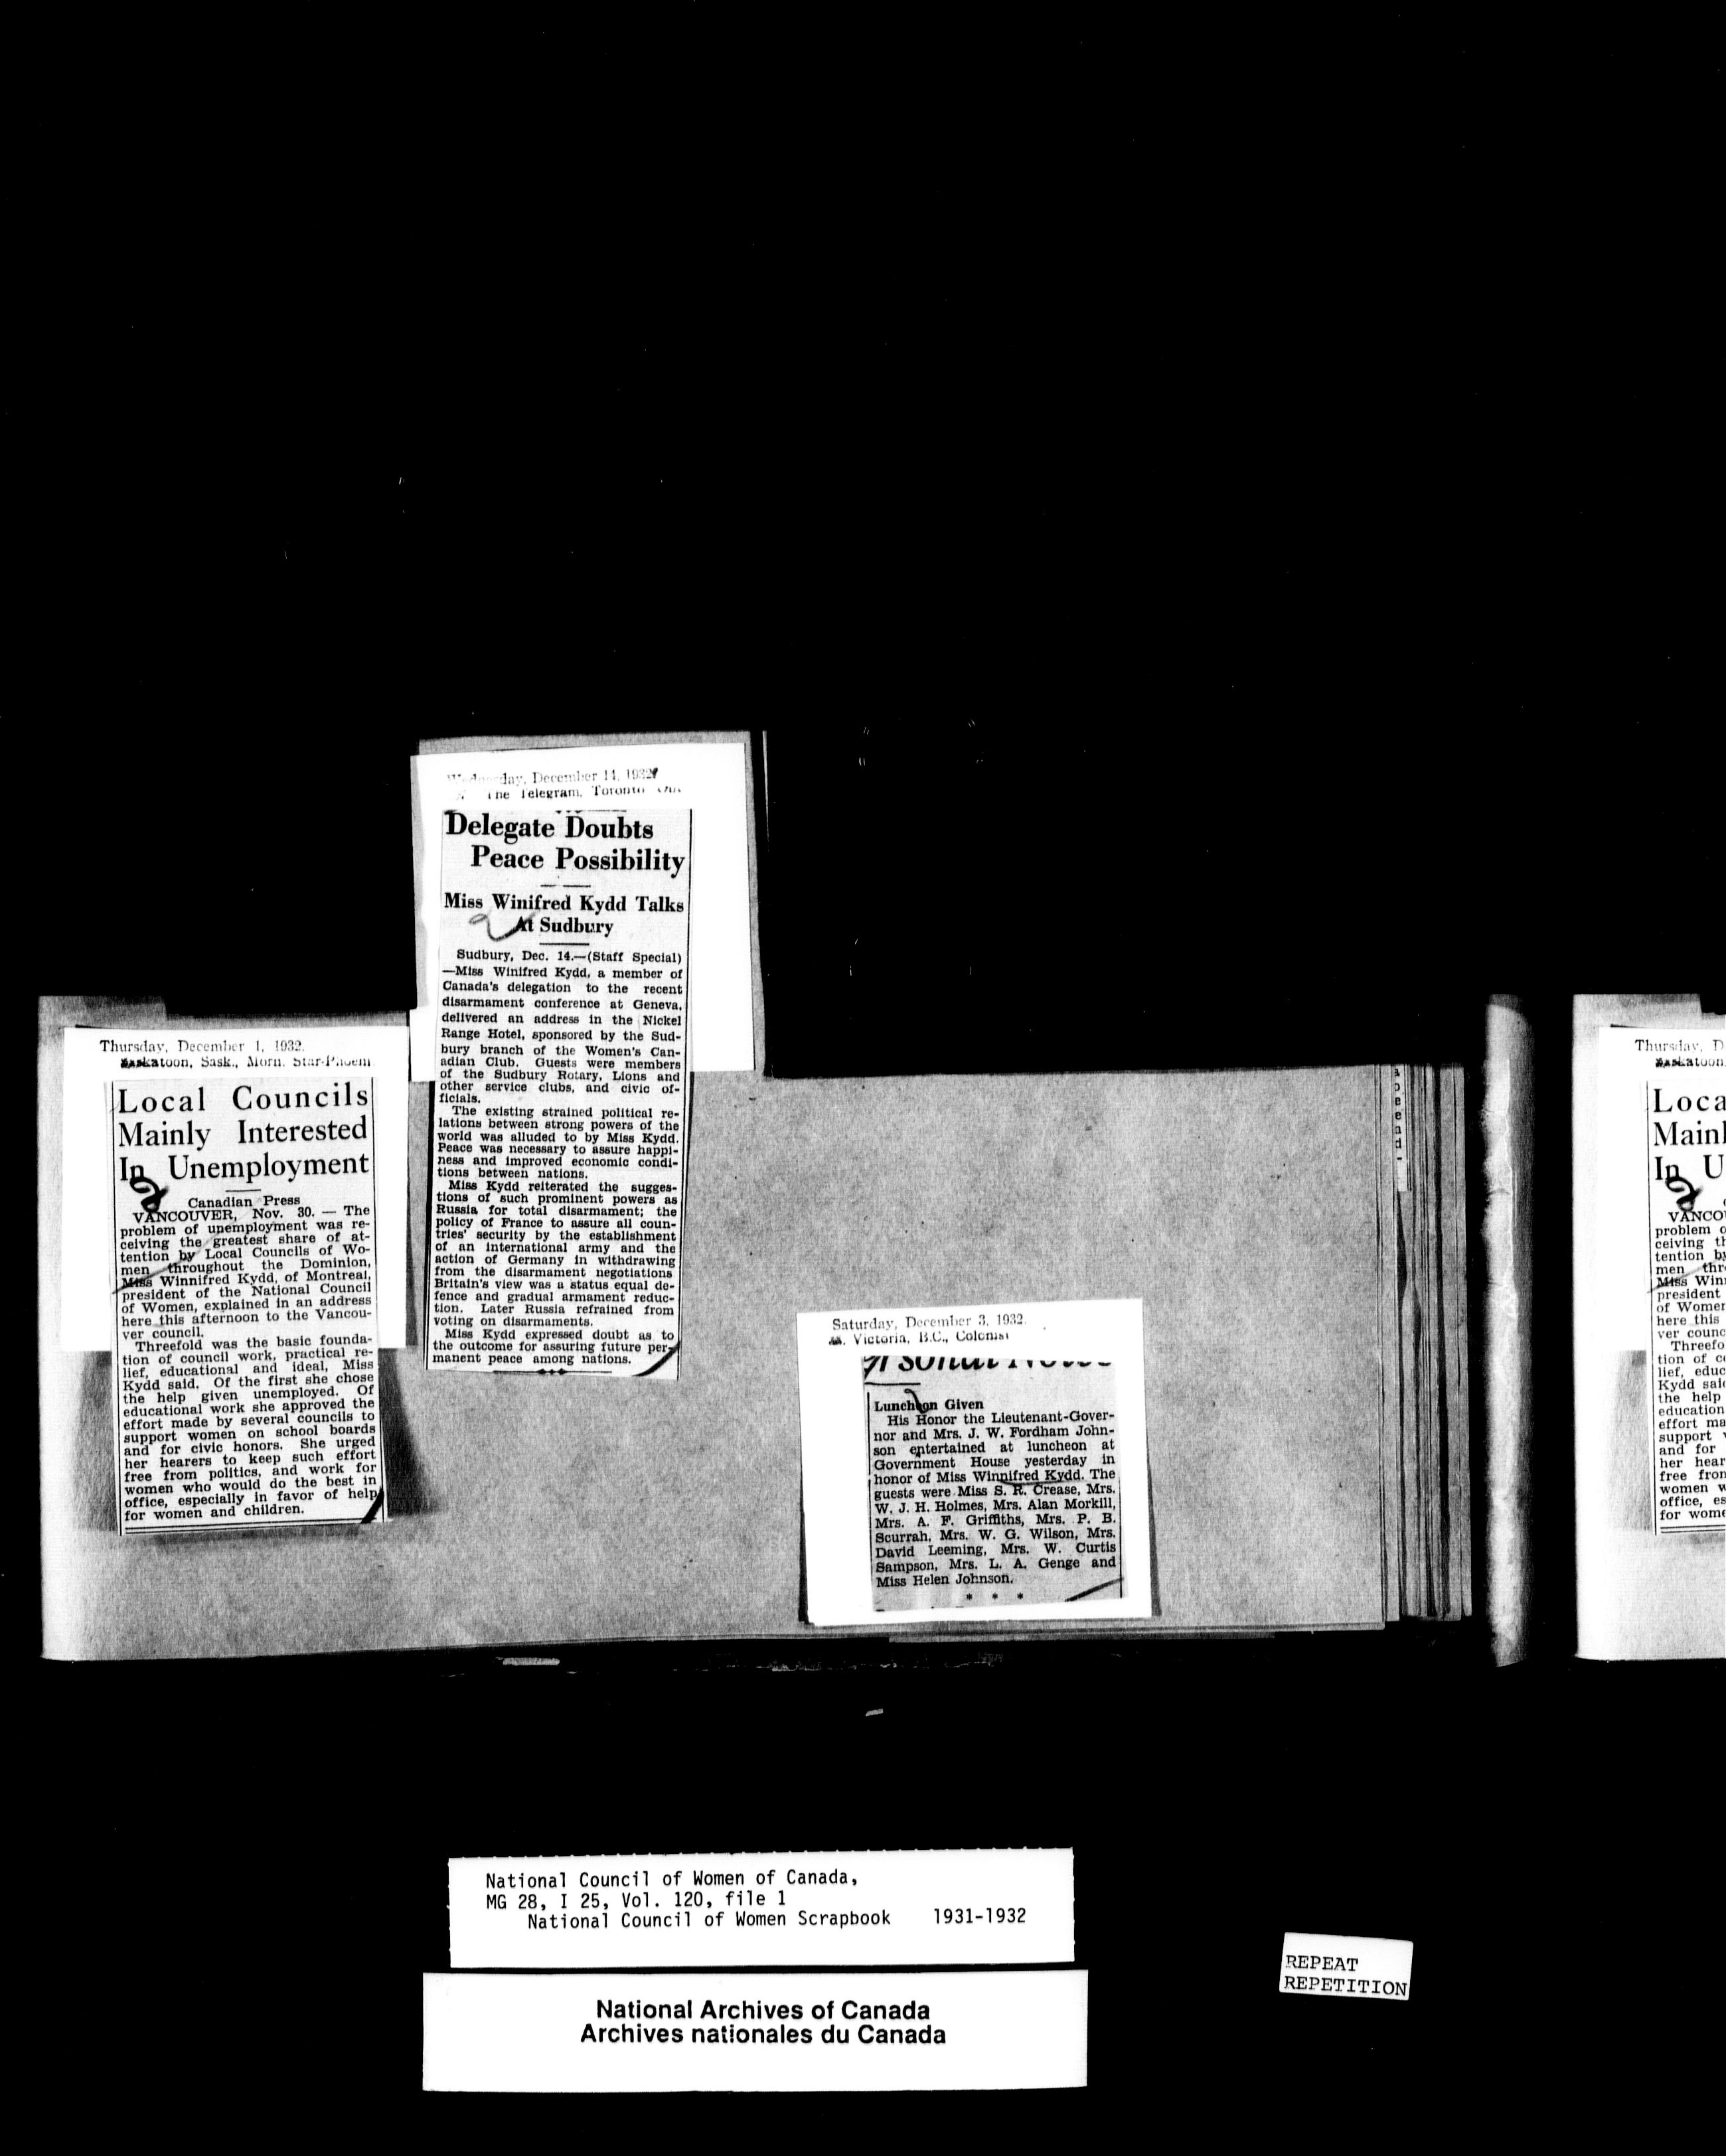 Thursday, December 1, 1932.
Saskatoon, Sask., Morn. Star-Phoeni
Local Councils
Mainly Interested
In Unemployment
Canadian Press
VANCOUVER, Nov. 30. — The
problem of unemployment was re-
ceiving the greatest share of at-
tention by Local Councils of Wo-
men throughout the Dominion,
Miss Winnifred Kydd, of Montreal,
president of the National Council
of Women, explained in an address
here this afternoon to the Vancou-
ver council.
Threefold was the basic founda-
tion of council work, practical re-
lief, educational and ideal, Miss
Kydd said. Of the first she chose
the help given unemployed. Of
educational work she approved the
effort made by several councils to
support women on school boards
and for civic honors. She urged
her hearers to keep such effort
free from politics, and work for
women who would do the best in
office, especially in favor of help
for women and children.
Wednesday, December 14, 1932
The Telegram, Toronto Ont.
Delegate Doubts
Peace Possibility
Miss Winifred Kydd Talks
At Sudbury
Sudbury, Dec. 14.—(Staff Special)
—Miss Winifred Kydd, a member of
Canada's delegation to the recent
disarmament conference at Geneva,
delivered an address in the Nickel
Range Hotel, sponsored by the Sud-
bury branch of the Women's Can-
adian Club. Guests were members
of the Sudbury Rotary, Lions and
other service clubs, and civic of-
ficials.
The existing strained political re-
lations between strong powers of the
world was alluded to by Miss Kydd.
Peace was necessary to assure happi-
ness and improved economic condi-
tions between nations.
Miss Kydd reiterated the sugges-
tions of such prominent powers as
Russia for total disarmament; the
policy of France to assure all coun-
tries' security by the establishment
of an international army and the
action of Germany in withdrawing
from the disarmament negotiations
Britain's view was a status equal de-
fence and gradual armament reduc-
tion. Later Russia refrained from
voting on disarmaments.
Miss Kydd expressed doubt as to
the outcome for assuring future per-
manent peace among nations.
Saturday, December 3, 1932.
Victoria, B.C., Colonist
Luncheon Given
His Honor the Lieutenant-Gover-
nor and Mrs. J. W. Fordham John-
son entertained at luncheon at
Government House yesterday in
honor of Miss Winnifred Kydd. The
guests were Miss S. R. Crease, Mrs.
W. J. H. Holmes, Mrs. Alan Morkill,
Mrs. A. F. Griffiths, Mrs. P. B.
Scurrah, Mrs. W. G. Wilson, Mrs.
David Leeming, Mrs. W. Curtis
Sampson, Mrs. L. A. Genge and
Miss Helen Johnson.
* * *
Thursday, D
Saskatoon
Loca
Mainl
In U
VANCOU
problem o
ceiving th
tention by
men thr
Miss Win
president
of Women
here this
ver counc
Threefo
tion of co
lief, educ
Kydd said
the help
education
effort ma
support
and for
her hear
free fron
women w
office, es
for wome
National Council of Women of Canada,
MG 28, I 25, Vol. 120, file 1
National Council of Women Scrapbook 1931-1932
National Archives of Canada
Archives nationales du Canada
REPEAT
REPETITION